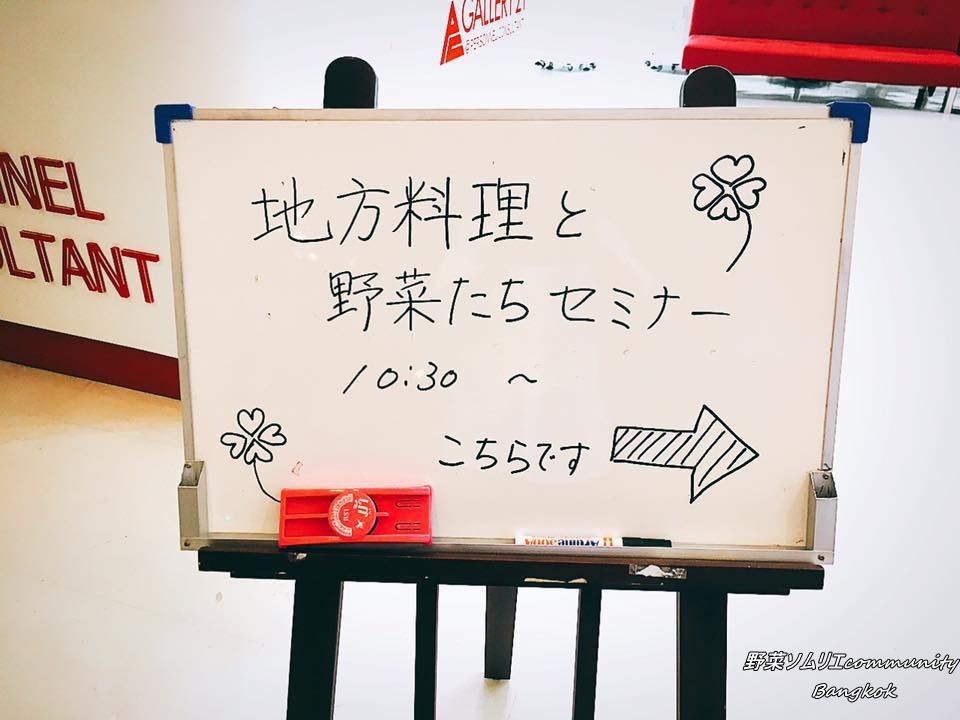 GALLERY 21
@PERSONNEL CONSULTANT
NNEL
ULTANT
地方料理と
野菜たちセミナー
10:30 ～
こちらです
野菜ソムリエcommunity
Bangkok